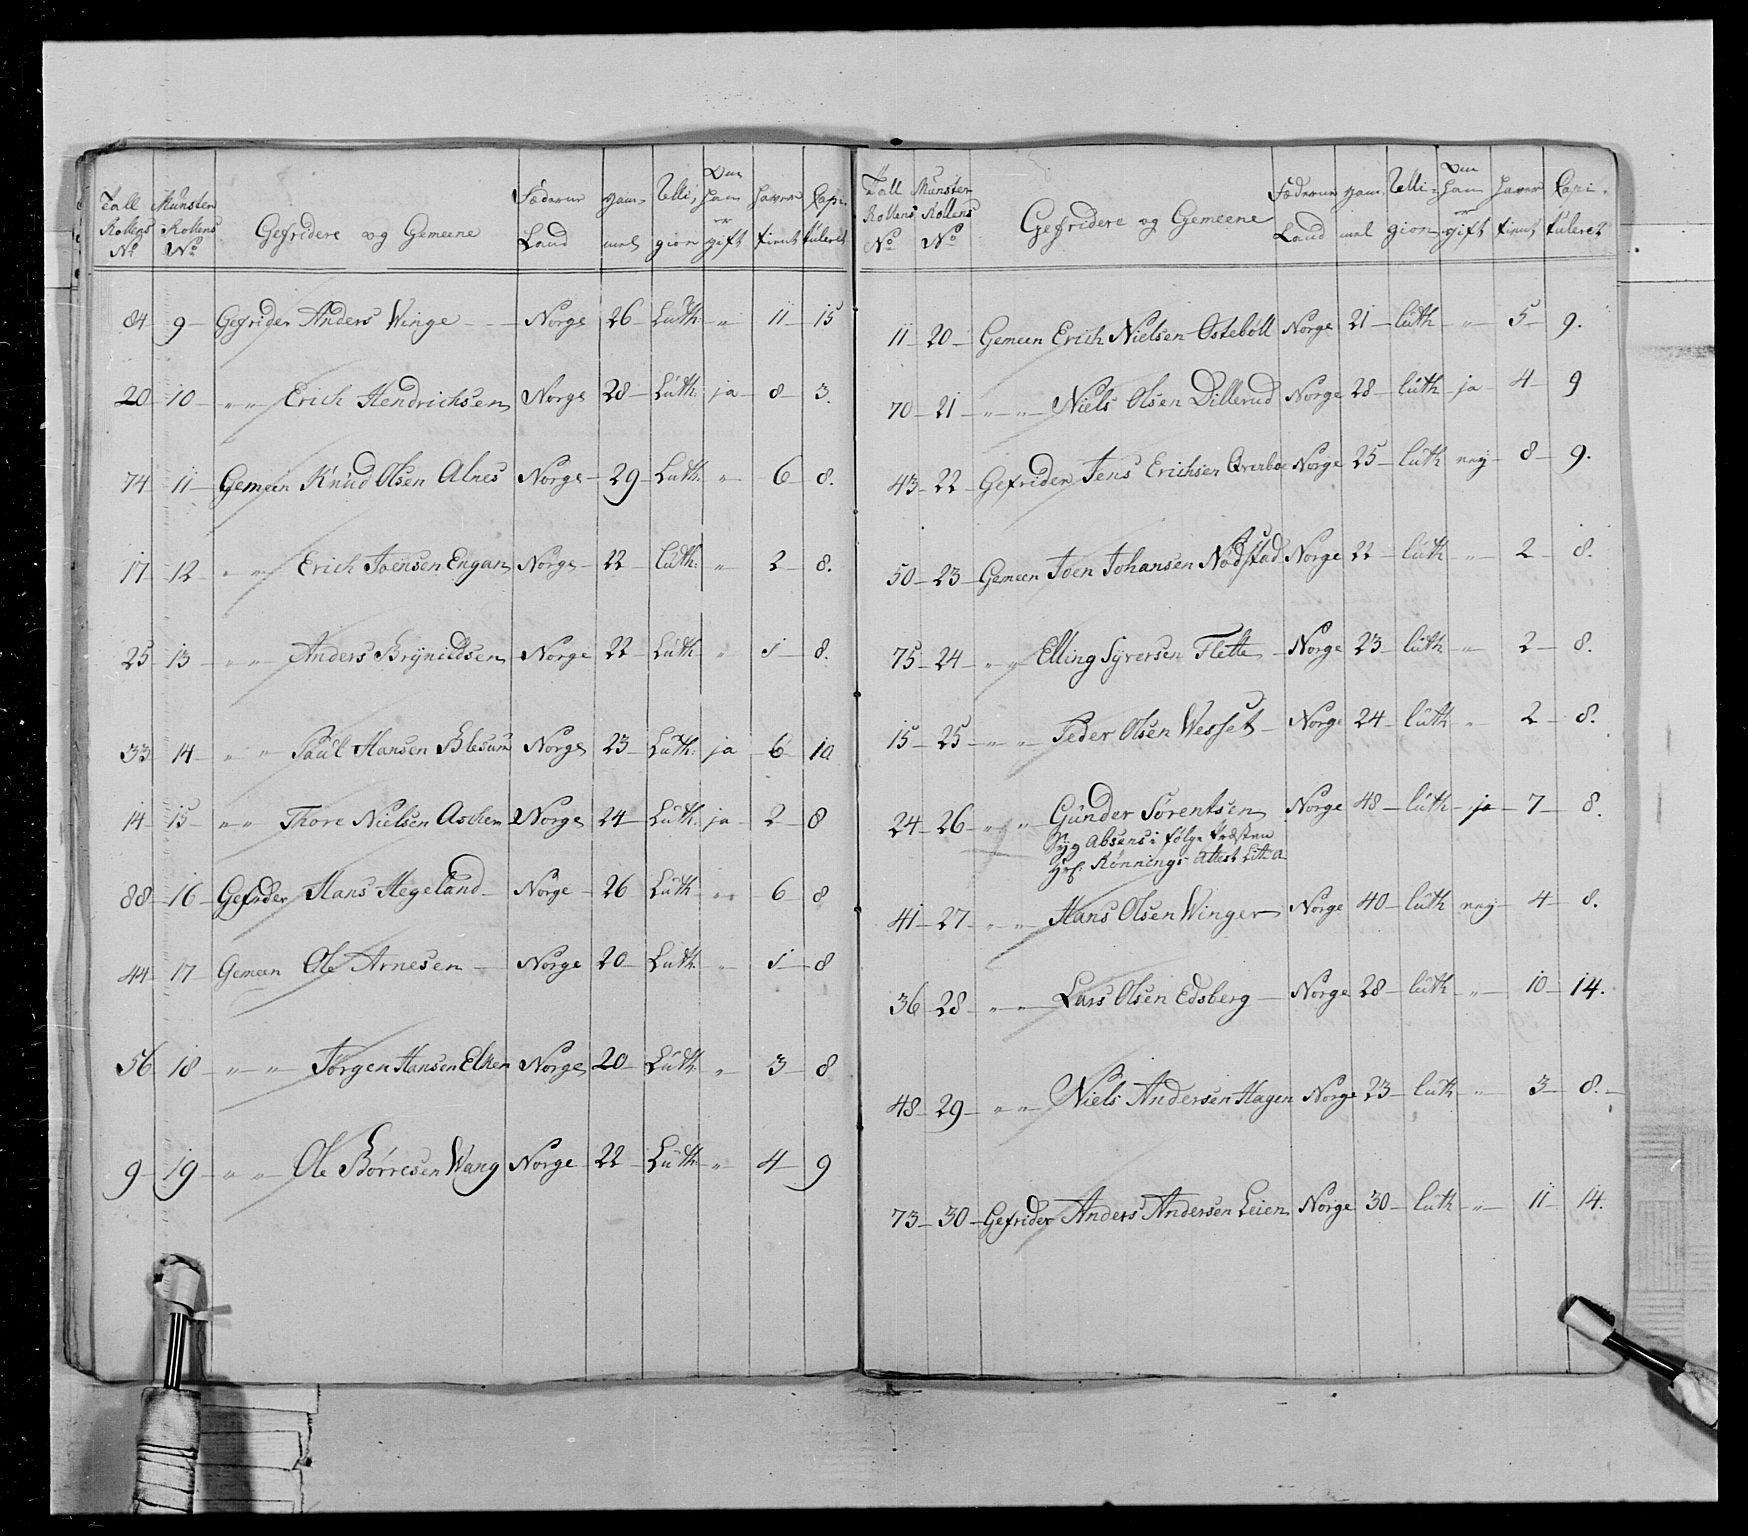 Tall Rollens No | Munster Rollens No | Gefridere og Gemeene | Fæderne Land | gammel | Relligion | Om ham er gift | haver tient | Capituleret
84 9 Gefrider Anders Winge Norge 26 Luth: " 11 15
20 10 " " Erich Hendrichsen Norge 28 Luth: ja 8 3.
74 11 Gemeen Knud Olsen Alnes Norge 29 Luth: " 6 8.
17 12 " " Erich Joensen Engan Norge 22 Luth: " 2 8.
25 13 " " Anders Brynildsen Norge 22 Luth " 1 8.
33 14 " " Paul Hansen Blesum Norge 23 Luth: ja 6 10
14 15 " " Thore Nielsen Asken Norge 24 Luth: ja 2 8
88 16 Gefrider Hans Hegeland Norge 26 Luth " 6 8
44 17 Gemeen Ole Arnesen Norge 20 Luth: " 1 8
56 18 " " Jørgen Hansen Elken Norge 20 Luth: " 3 8
9 19 " " Ole Børresen Wang Norge 22 Luth " 4 9
Tall Rollens No | Munster Rollens No | Gefridere og Gemeene | Fæderne Land | gammel | Relligion | Om ham er gift | haver tient | Capituleret
11 20 Gemeen Erich Nielsen Ostebøll Norge 21 luth " 5 9.
70 21 " " Niels Olsen Dillerud Norge 28 luth ja 4 9
43 22 Gefrider Jens Erichsen Norge 25 luth ney 8 9.
50 23 Gemeen Joen Johansen Nødstad Norge 22 luth " 2 8.
75 24 " " Elling Syversen Flette Norge 23 luth " 2 8.
15 25 " " Peder Olsen Wesset Norge 24 luth " 2 8.
24 26 " " Gunder Sørentsen Norge 48 luth ja 7 8.
Syg Absens i følge Præsten
Hr: Rønnings Attest Litr: a
41 27 " " Hans Olsen Winger Norge 40 luth ney 4 8.
36 28 " " Lars Olsen Edsberg Norge 28 luth " 10 14.
48 29 " " Niels Andersen Hagen Norge 23 luth " 3 8.
73 30 Gefrider Anders Andersen Leien Norge 30 luth " 11 14.